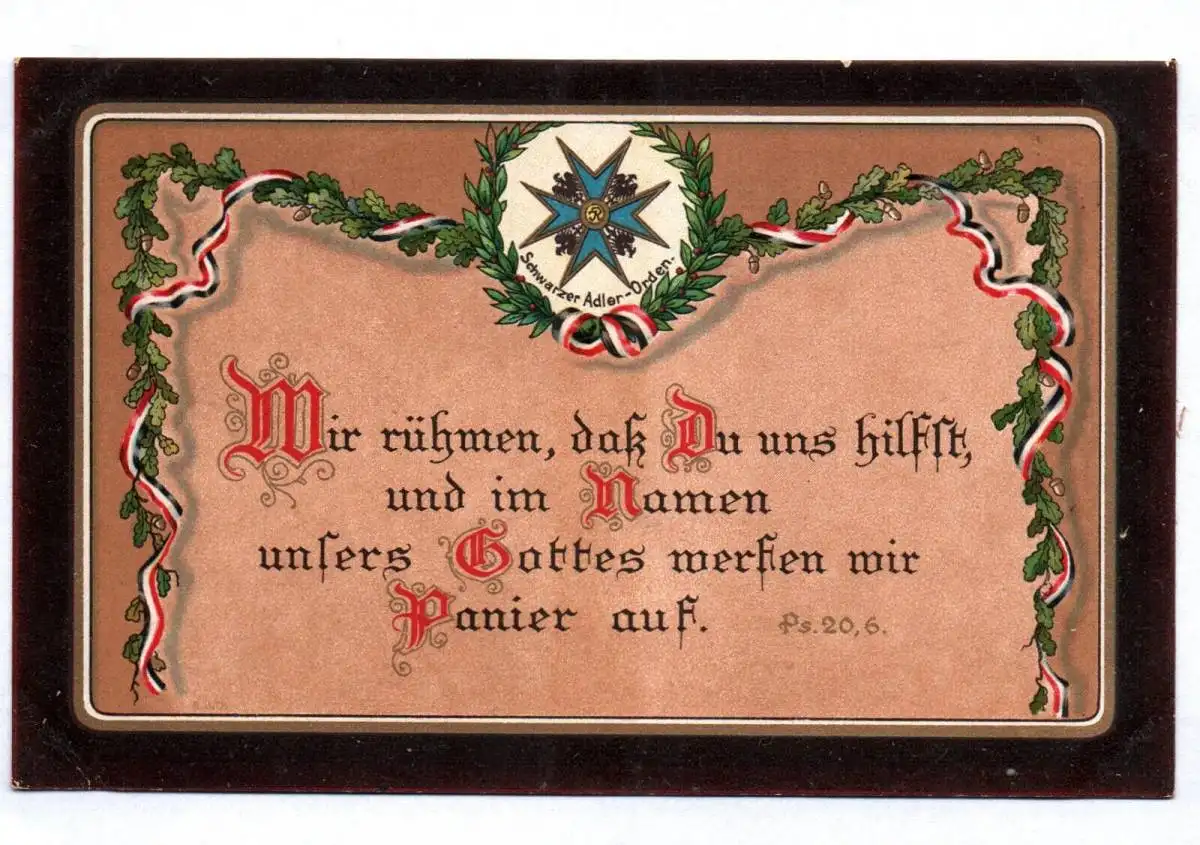 Schwarzer Adler-Orden.
Wir rühmen, daß Du uns hilfst,
und im Namen
unsers Gottes werfen wir
Panier auf. Ps. 20, 6.